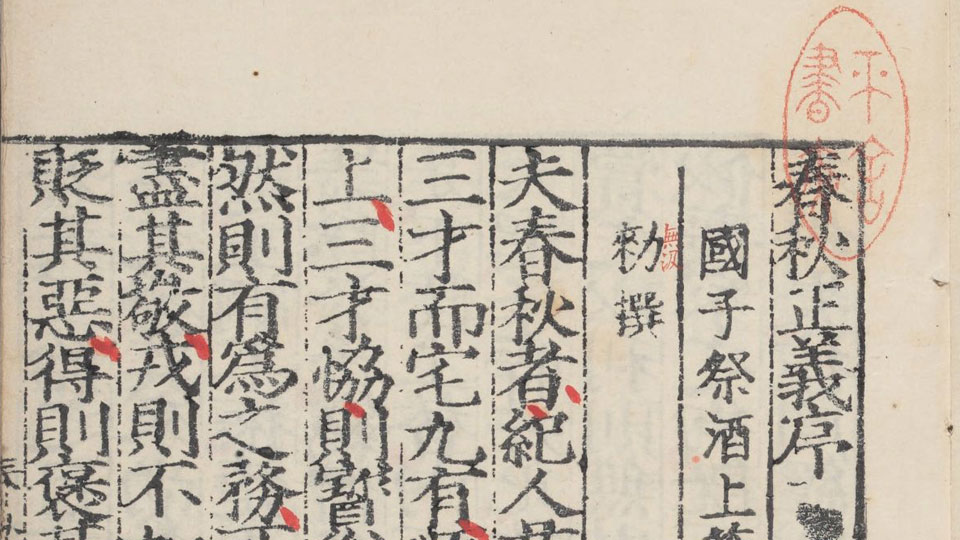 春秋正義序
國子祭酒上
勑撰
夫春秋者紀人
三才而宅九有
上三才恊則寳
然則有爲之務
盡其敬戎則不
貶其惡得則褒